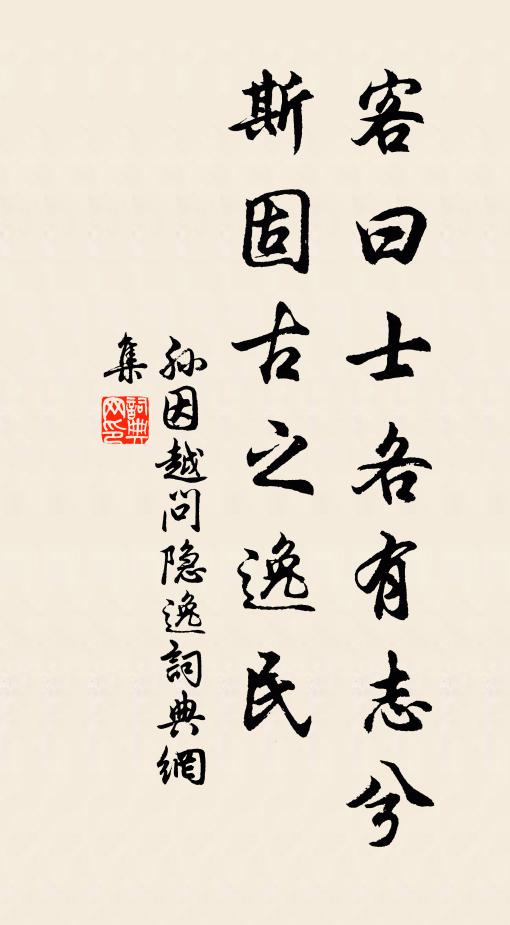 客曰士各有志兮
斯固古之逸民
孙因越问隐逸詞典網
集
詞典
网印